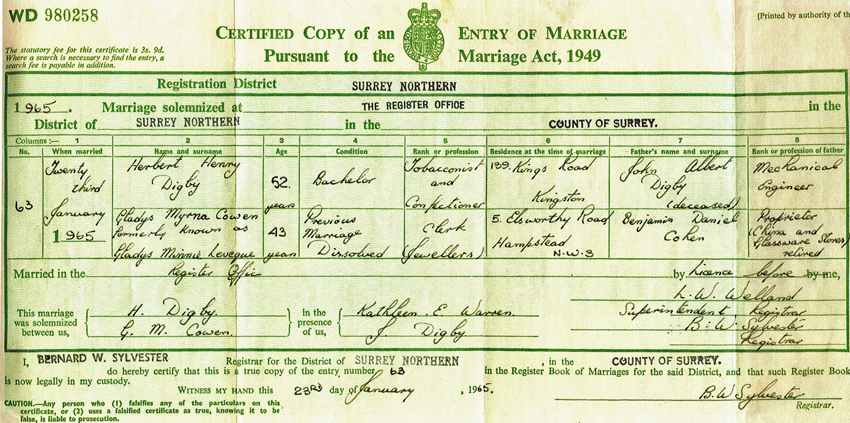 WD 980258
CERTIFIED COPY of an ENTRY OF MARRIAGE
Pursuant to the Marriage Act, 1949
[Printed by authority of the
The statutory fee for this certificate is 3s. 9d.
Where a search is necessary to find the entry, a
search fee is payable in addition.
Registration District SURREY NORTHERN
1965. Marriage solemnized at THE REGISTER OFFICE in the
District of SURREY NORTHERN in the COUNTY OF SURREY.
Columns:— 1 2 3 4 5 6 7 8
No. When married Name and surname Age Condition Rank or profession Residence at the time of marriage Father's name and surname Rank or profession of father
63
Twenty
third
January
1965
Herbert Henry
Digby
52
years
Bachelor
Tobacconist
and
Confectioner
139. Kings Road
Kingston
John Albert
Digby
(deceased)
Mechanical
Engineer
Gladys Myrna Cowen
formerly known as
Gladys Minnie Leveque
43
years
Previous
Marriage
Dissolved
Clerk
(Jewellers)
5. Elsworthy Road
Hampstead
N.W.3
Benjamin Daniel
Cohen
Proprietor
(China and
Glassware Stores)
retired
Married in the Register Office by Licence before by me,
This marriage
was solemnized
between us,
H. Digby.
G. M. Cowen.
in the
presence
of us,
Kathleen. E. Warren.
J. Digby
L. W. Welland
Superintendent Registrar
B. W. Sylvester
Registrar
I, BERNARD W. SYLVESTER Registrar for the District of SURREY NORTHERN, in the COUNTY OF SURREY.
do hereby certify that this is a true copy of the entry number 63 in the Register Book of Marriages for the said District, and that such Register Book
is now legally in my custody.
WITNESS MY HAND this 23RD day of January, 1965.
CAUTION.—Any person who (1) falsifies any of the particulars on this
certificate, or (2) uses a falsified certificate as true, knowing it to be
false, is liable to prosecution.
B. W Sylvester
Registrar.